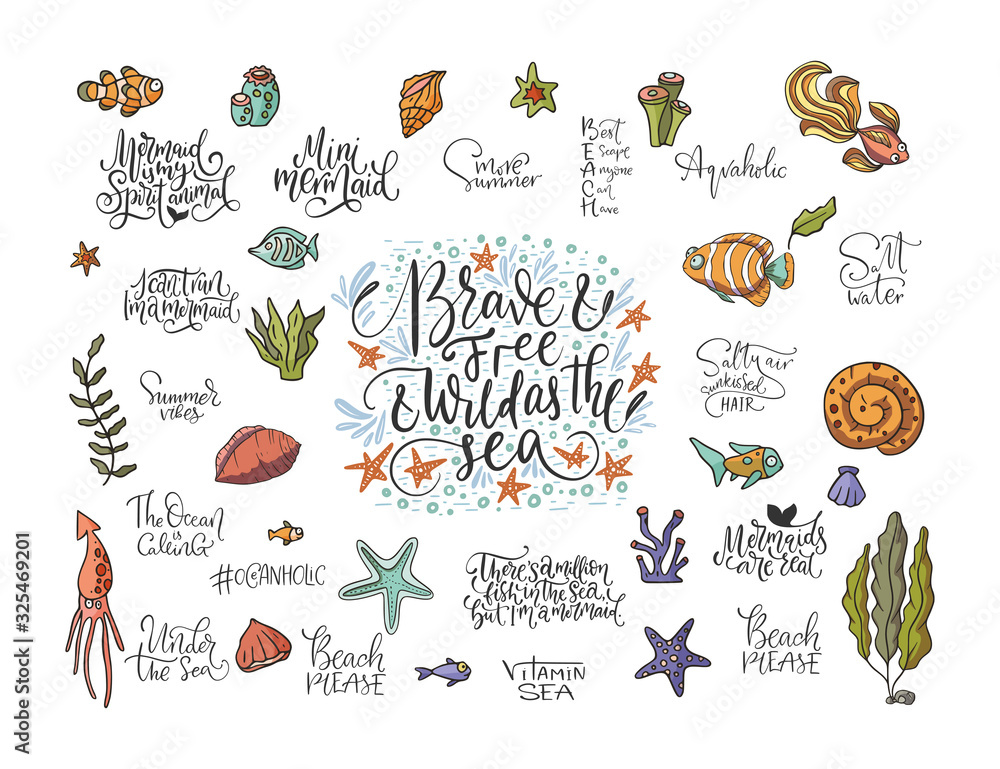 Mermaid
is my
Spirit animal
Mini
mermaid
Smore
Summer
Best
Escape
Anyone
Can
Have
Aqvaholic
I can't run
I'm a mermaid
Brave &
Free
& Wild as the
sea
Salt
water
Summer
vibes
Salty air
sunkissed
HAIR
The Ocean
is
Calling
#oceanholic
There's a million
fish in the sea,
but I'm a mermaid.
Mermaids
are real
Under
The Sea
Beach
PLEASE
Vitamin
SEA
Beach
PLEASE
Adobe Stock | #325469201